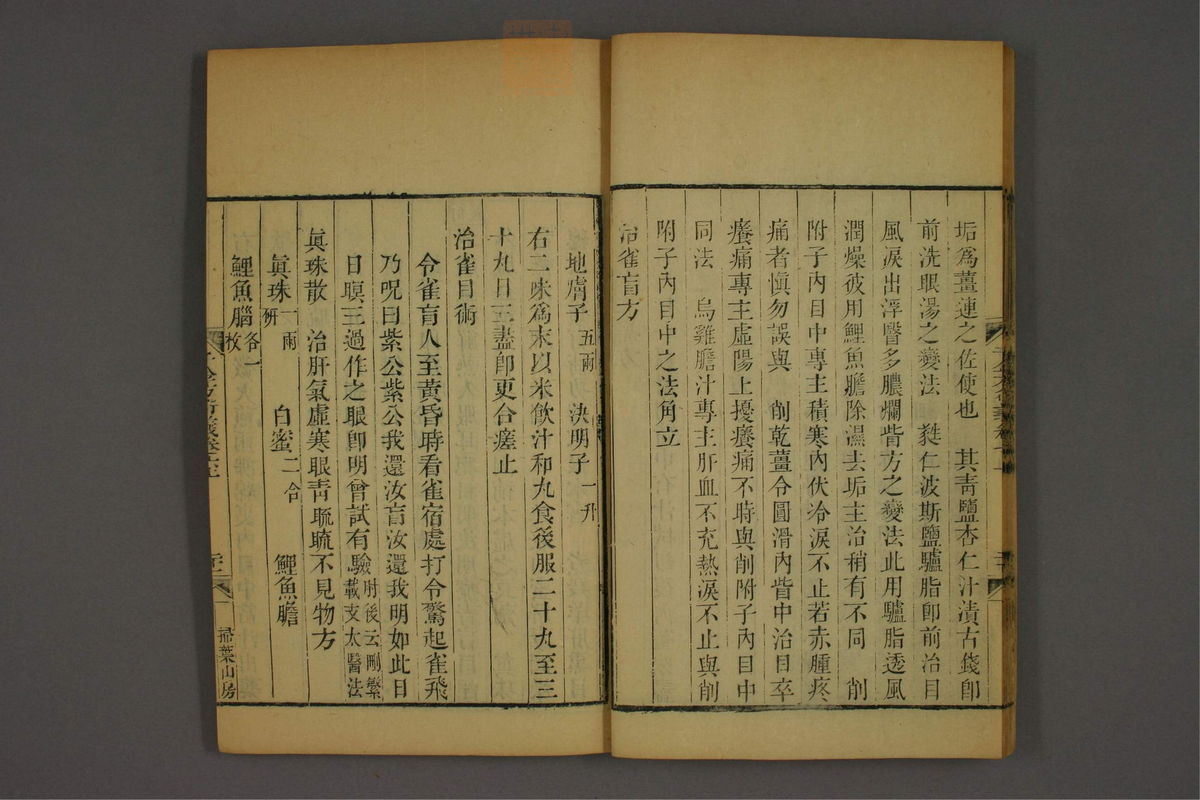 垢為薑連之佐使也 其青鹽杏仁汁漬古錢卽
前洗眼湯之變法 蕤仁波斯鹽驢脂卽前治目
風淚出浮瞖多膿爛眥方之變法此用驢脂透風
潤燥彼用鯉魚膽除濕去垢主治稍有不同 削
附子內目中專主積寒內伏冷淚不止若赤腫疼
痛者愼勿誤與 削乾薑令圓滑內眥中治目卒
癢痛專主虛陽上擾癢痛不時與削附子內目中
同法 烏雞膽汁專主肝血不充熱淚不止與削
附子內目中之法角立
治雀盲方
地膚子五兩 決明子一升
右二味為末以米飲汁和丸食後服二十丸至三
十丸日三盡卽更合瘥止
治雀目術
令雀盲人至黃昏時看雀宿處打令驚起雀飛
乃呪曰紫公紫公我還汝盲汝還我明如此日
日暝三過作之眼卽明曾試有驗肘後云刪繁載支太醫法
眞珠散 治肝氣虛寒眼靑䀮䀮不見物方
眞珠一兩研 白蜜二合 鯉魚膽
鯉魚腦各一枚
掃葉山房